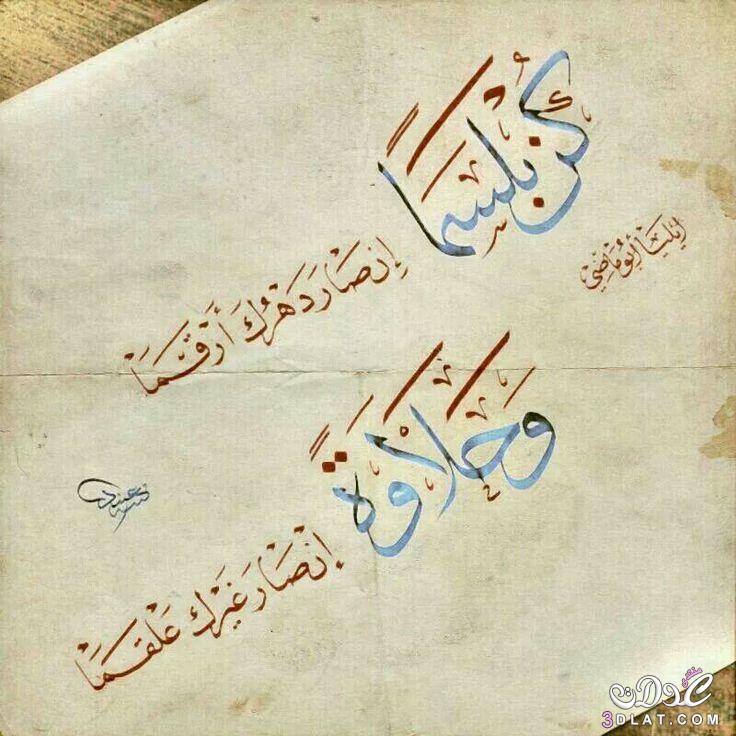 كُن بُلْسَمًا
إِن صَارَ دَهْرُكَ أَرْقَمَا
إيليَا أبُو مَاضِي
وَحَلَاوَةً
إِنْ صَارَ غَيْرُكَ عَلْقَمَا
منتدى عدلات
3DLAT.COM